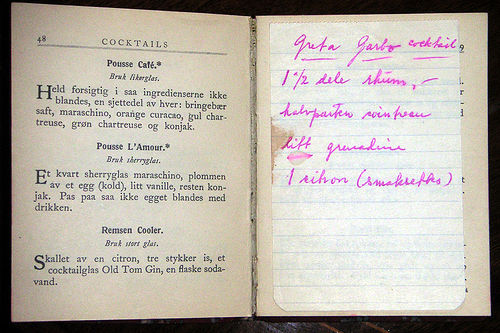 48
COCKTAILS
Pousse Café.*
Bruk likørglas.
Held forsigtig i saa ingredienserne ikke
blandes, en sjettedel av hver: bringebær
saft, maraschino, orange curacao, gul char-
treuse, grøn chartreuse og konjak.
Pousse L'Amour.*
Bruk sherryglas.
Et kvart sherryglas maraschino, plommen
av et egg (kold), litt vanille, resten kon-
jak. Pas paa saa ikke egget blandes med
drikken.
Remsen Cooler.
Bruk stort glas.
Skallet av en citron, tre stykker is, et
cocktailglas Old Tom Gin, en flaske soda-
vand.
Greta Garbo cocktail
1 1/2 dele rhum,
halvparten cointreau
litt grenadine
1 citron (smaksettes)